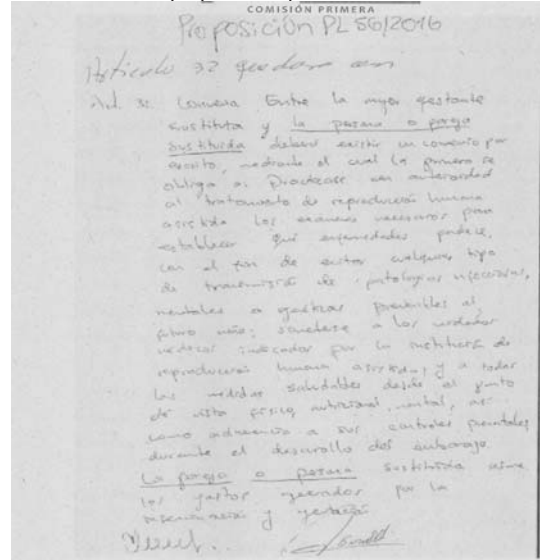 COMISIÓN PRIMERA
Proposición PL 56/2016
Articulo 32 quedara así
Art. 3: Convenio Entre la mujer gestante
sustituta y la persona o pareja
sustituida deberá existir un convenio por
escrito, mediante el cual la primera se
obliga a: Practicarse con anterioridad
al tratamiento de reproducción humana
asistida los exámenes necesarios para
establecer qué enfermedades padece,
con el fin de evitar cualquier tipo
de transmisión de patologías infecciosas,
mentales o genéticas prevenibles al
futuro niño; someterse a los cuidados
médicos indicados por la institución de
reproducción humana asistida, y a todas
las medidas saludables desde el punto
de vista físico, nutricional, mental, así
como adherencia a sus controles prenatales
durante el desarrollo del embarazo.
La pareja o persona sustituida asume
los gastos generados por la
inseminación y gestación